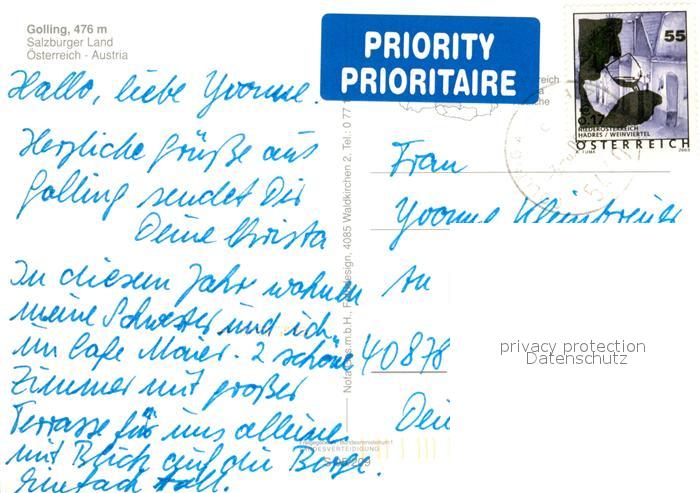 Golling, 476 m
Salzburger Land
Österreich - Austria
Hallo, liebe Yvonne.
Herzliche Grüße aus
Golling sendet Dir
Deine Christa
In diesem Jahr wohnen
meine Schwester und ich
im Cafe Maier. 2 schöne
Zimmer mit großer
Terrasse für uns alleine
mit Blick auf die Berge.
Einfach toll.
PRIORITY
PRIORITAIRE
55
0,17
NIEDERÖSTERREICH
HADRES / WEINVIERTEL
ÖSTERREICH
Frau
Yvonne
An
40878
privacy protection
Datenschutz
4085 Waldkirchen 2, Tel.: 0 77 1